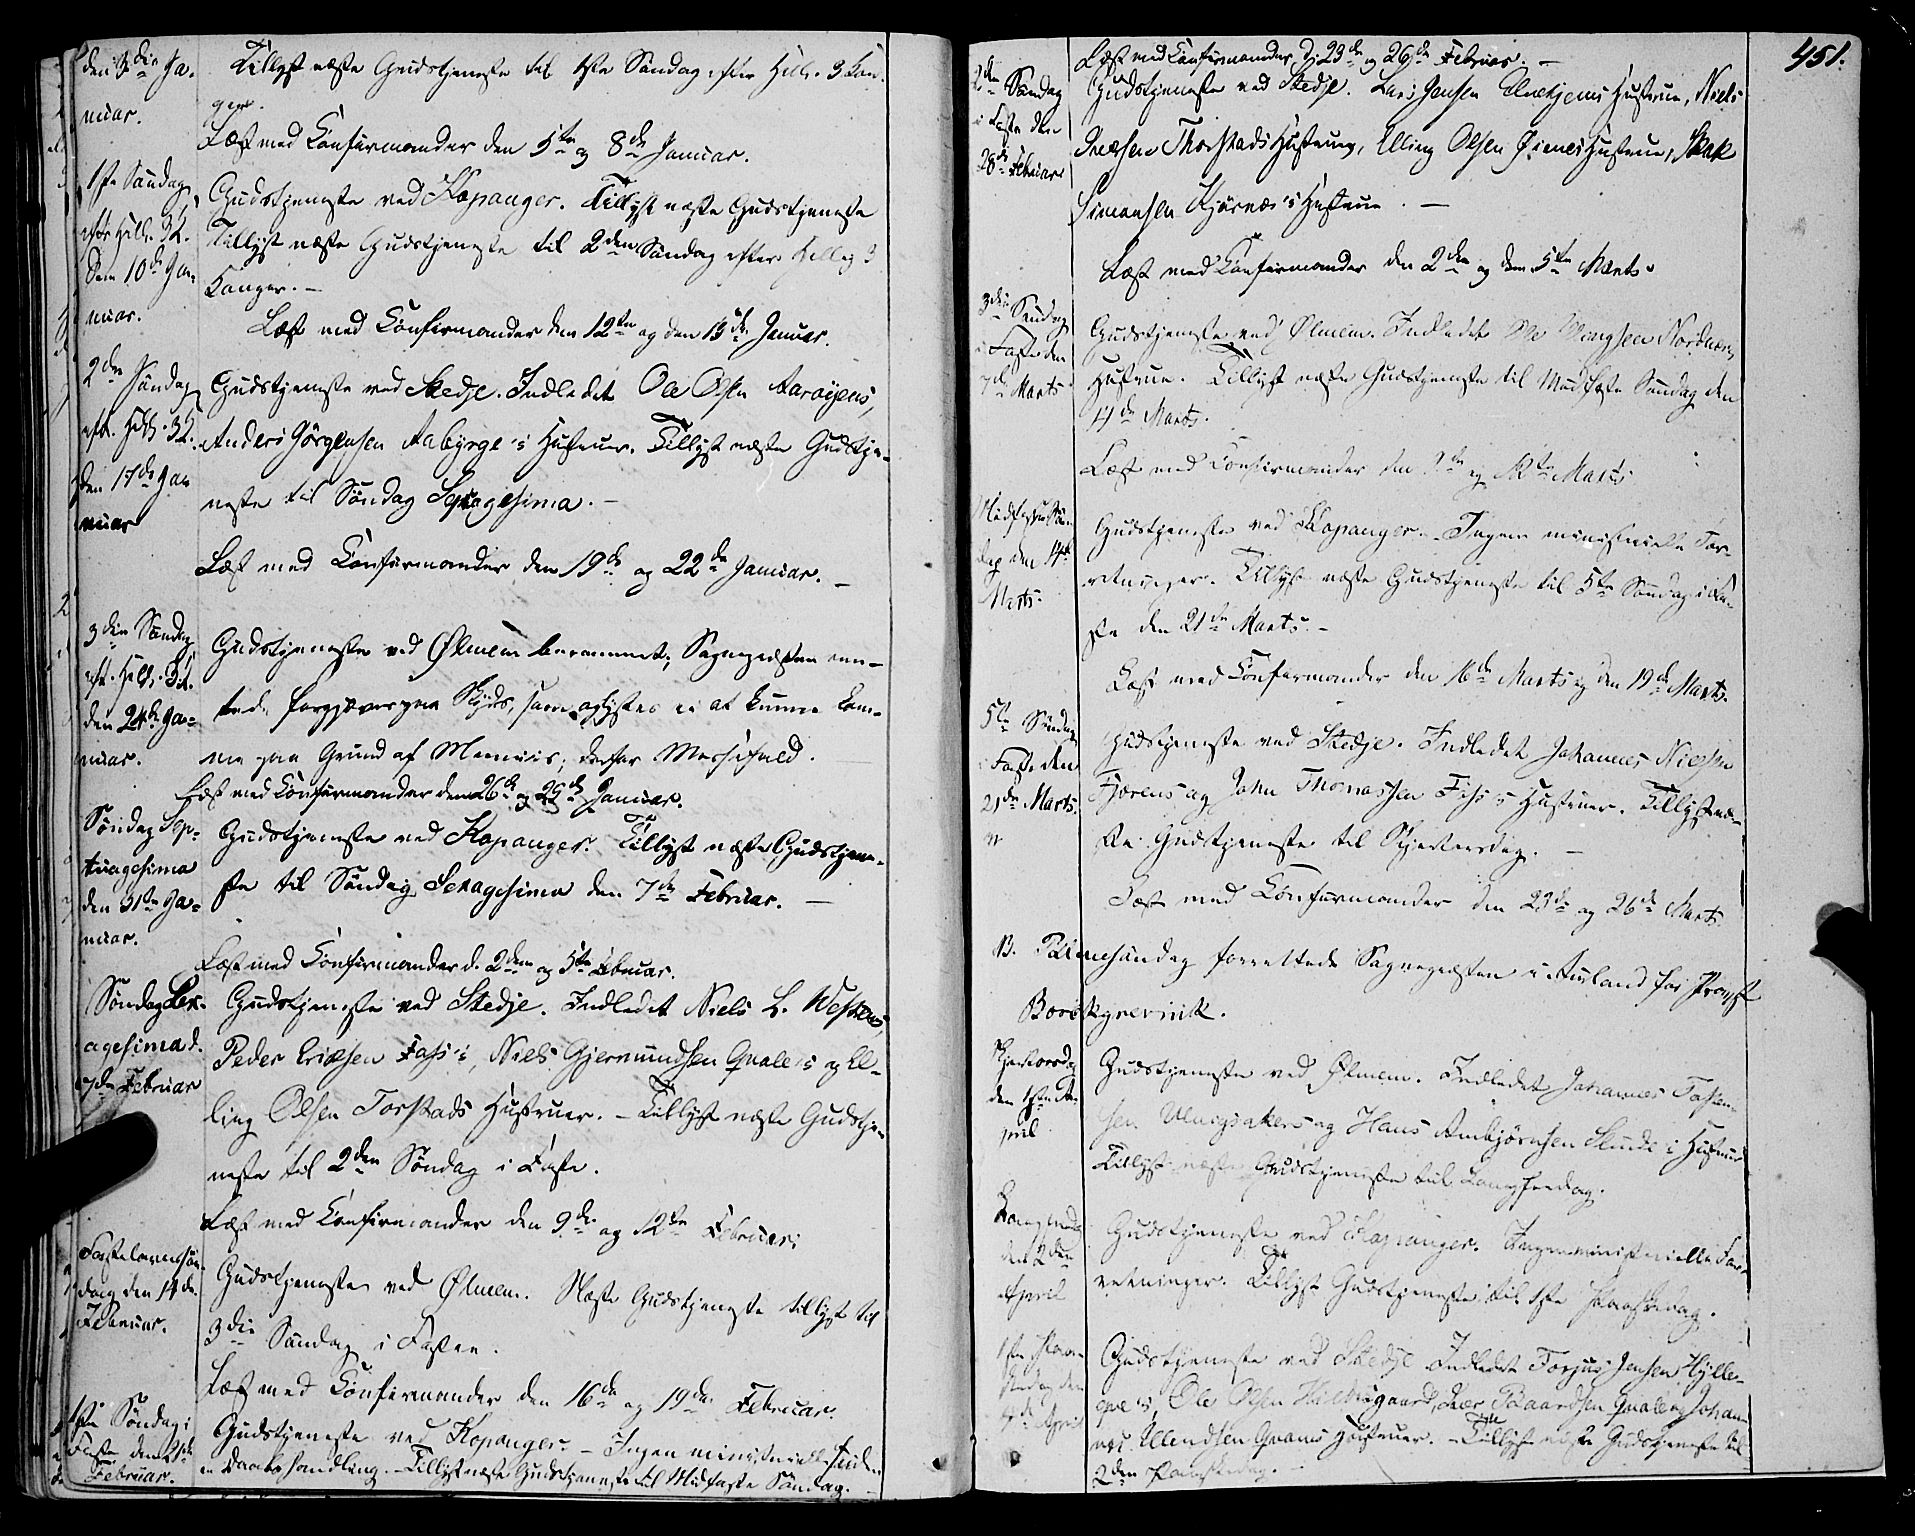 den 3die Ja-
nuar.
Tillyst næste Gudstjeneste til 1ste Søndag efter Hell. 3 Kon-
ger.
Læst med Confirmander den 5te og 8de Januar.
1ste Søndag
efter Hell. 3 K.
den 10de Ja-
nuar.
Gudstjeneste ved Kopanger. Tillyst næste Gudstjeneste
Tillyst næste Gudstjeneste til 2den Søndag efter Hellig 3
Konger. –
Læst med Confirmander den 12te og den 15de Januar.
2den Søndag
eft. Hell. 3 K.
den 17de Ja-
nuar
Gudstjeneste ved Stedje. Indledet Ole Olsen Aarøyens,
Anders Jørgensen Aabyrge's Hustruer. Tillyst næste Gudstje-
neste til Søndag Septuagesima. –
Læst med Confirmander den 19de og 22de Januar. –
3die Søndag
eft. Hell. 3 K.
den 24de Ja-
nuar.
Gudstjeneste ved Ølmem berammet; Sognepræsten ven-
tede forgjæves paa Skyds, som ei at kunne kom-
me paa Grund af Meenis; derfor Messefald.
Læst med Confirmander den 26de og 29de Januar.
Søndag Sep-
tuagesima
den 31te Ja-
nuar.
Gudstjeneste ved Kopanger. Tillyst næste Gudstjene-
ste til Søndag Sexagesima den 7de Februar. –
Læst med Confirmander d. 2den og 5te Februar.
Søndag Sex-
agesima d.
7de Februar
Gudstjeneste ved Stedje. Indledet Niels L. Westrens,
Peder Ericsen Foss's, Niels Gjermundsen Quale's og El-
ling Olsen Torstads Hustruer. – Tillyst næste Gudstje-
neste til 2den Søndag i Faste.
Læst med Confirmander den 9de og 12te Februar.
Fastelavnssøn-
dag den 14de
Februar.
Gudstjeneste ved Ølmem. Næste Gudstjeneste tillyst til
3die Søndag i Fasten.
Læst med Confirmander den 16de og 19de Februar.
1ste Søndag i
Faste den 21de
Februar.
Gudstjeneste ved Kopanger. – Ingen ministeriell
Daabshandling. – Tillyst næste Gudstjeneste til Midfaste Søndag. –
451.
Læst med Confirmander d. 23de og 26de Februar. –
2den Søndag
i Faste den
28de Februar
Gudstjeneste ved Stedje. Lars Jensen Hustrue, Niels
Thorstads Hustrue, Elling Olsen Øienes Hustrue,
Simonsen Kjørnæs's Hustrue. –
Læst med Confirmander den 2den og den 5te Marts.
3die Søndag
i Faste den
7de Marts
Gudstjeneste ved Ølmem. Indledet Nordnæs
Hustrue. Tillyst næste Gudstjeneste til Midfaste Søndag den
14de Marts.
Læst med Confirmander den 9de og 12te Marts
Midfaste Søn-
dag den 14de
Marts.
Gudstjeneste ved Kopanger. Ingen ministerielle For-
retninger. Tillyst næste Gudstjeneste til 5te Søndag i Fa-
ste den 21de Marts. –
Læst med Confirmander den 16de Marts og den 19de Marts.
5te Søndag
i Faste den
21de Marts.
Gudstjeneste ved Stedje. Indledet Johannes Nielsen
Fjærens og John Thomassen Foss's Hustruer. Tillyst næ-
ste Gudstjeneste til Skjærtorsdag. –
Læst med Confirmander den 23de og 26de Marts.
Palmesøndag forrettede Sognepræsten i Aurland for Provst
Skjærtorsdag
den 1ste A-
pril
Gudstjeneste ved Ølmem. Indledet Johannes
sen og Hans Ambjørnsen Hustruer
Tillyst næste Gudstjeneste til Langfredag.
Langfredag
den 2den
April
Gudstjeneste ved Kopanger. Ingen ministerielle For-
retninger. Tillyst Gudstjeneste til 1ste Paaskedag.
1ste Paa-
skedag den
4de April
Gudstjeneste ved Stedje Indledet Torjus Jensen Hylle-
Ole Olsen Baardsen Quale og Johan-
nes Quams Hustruer. – Tillyst næste Gudstjeneste til
2den Paaskedag. –